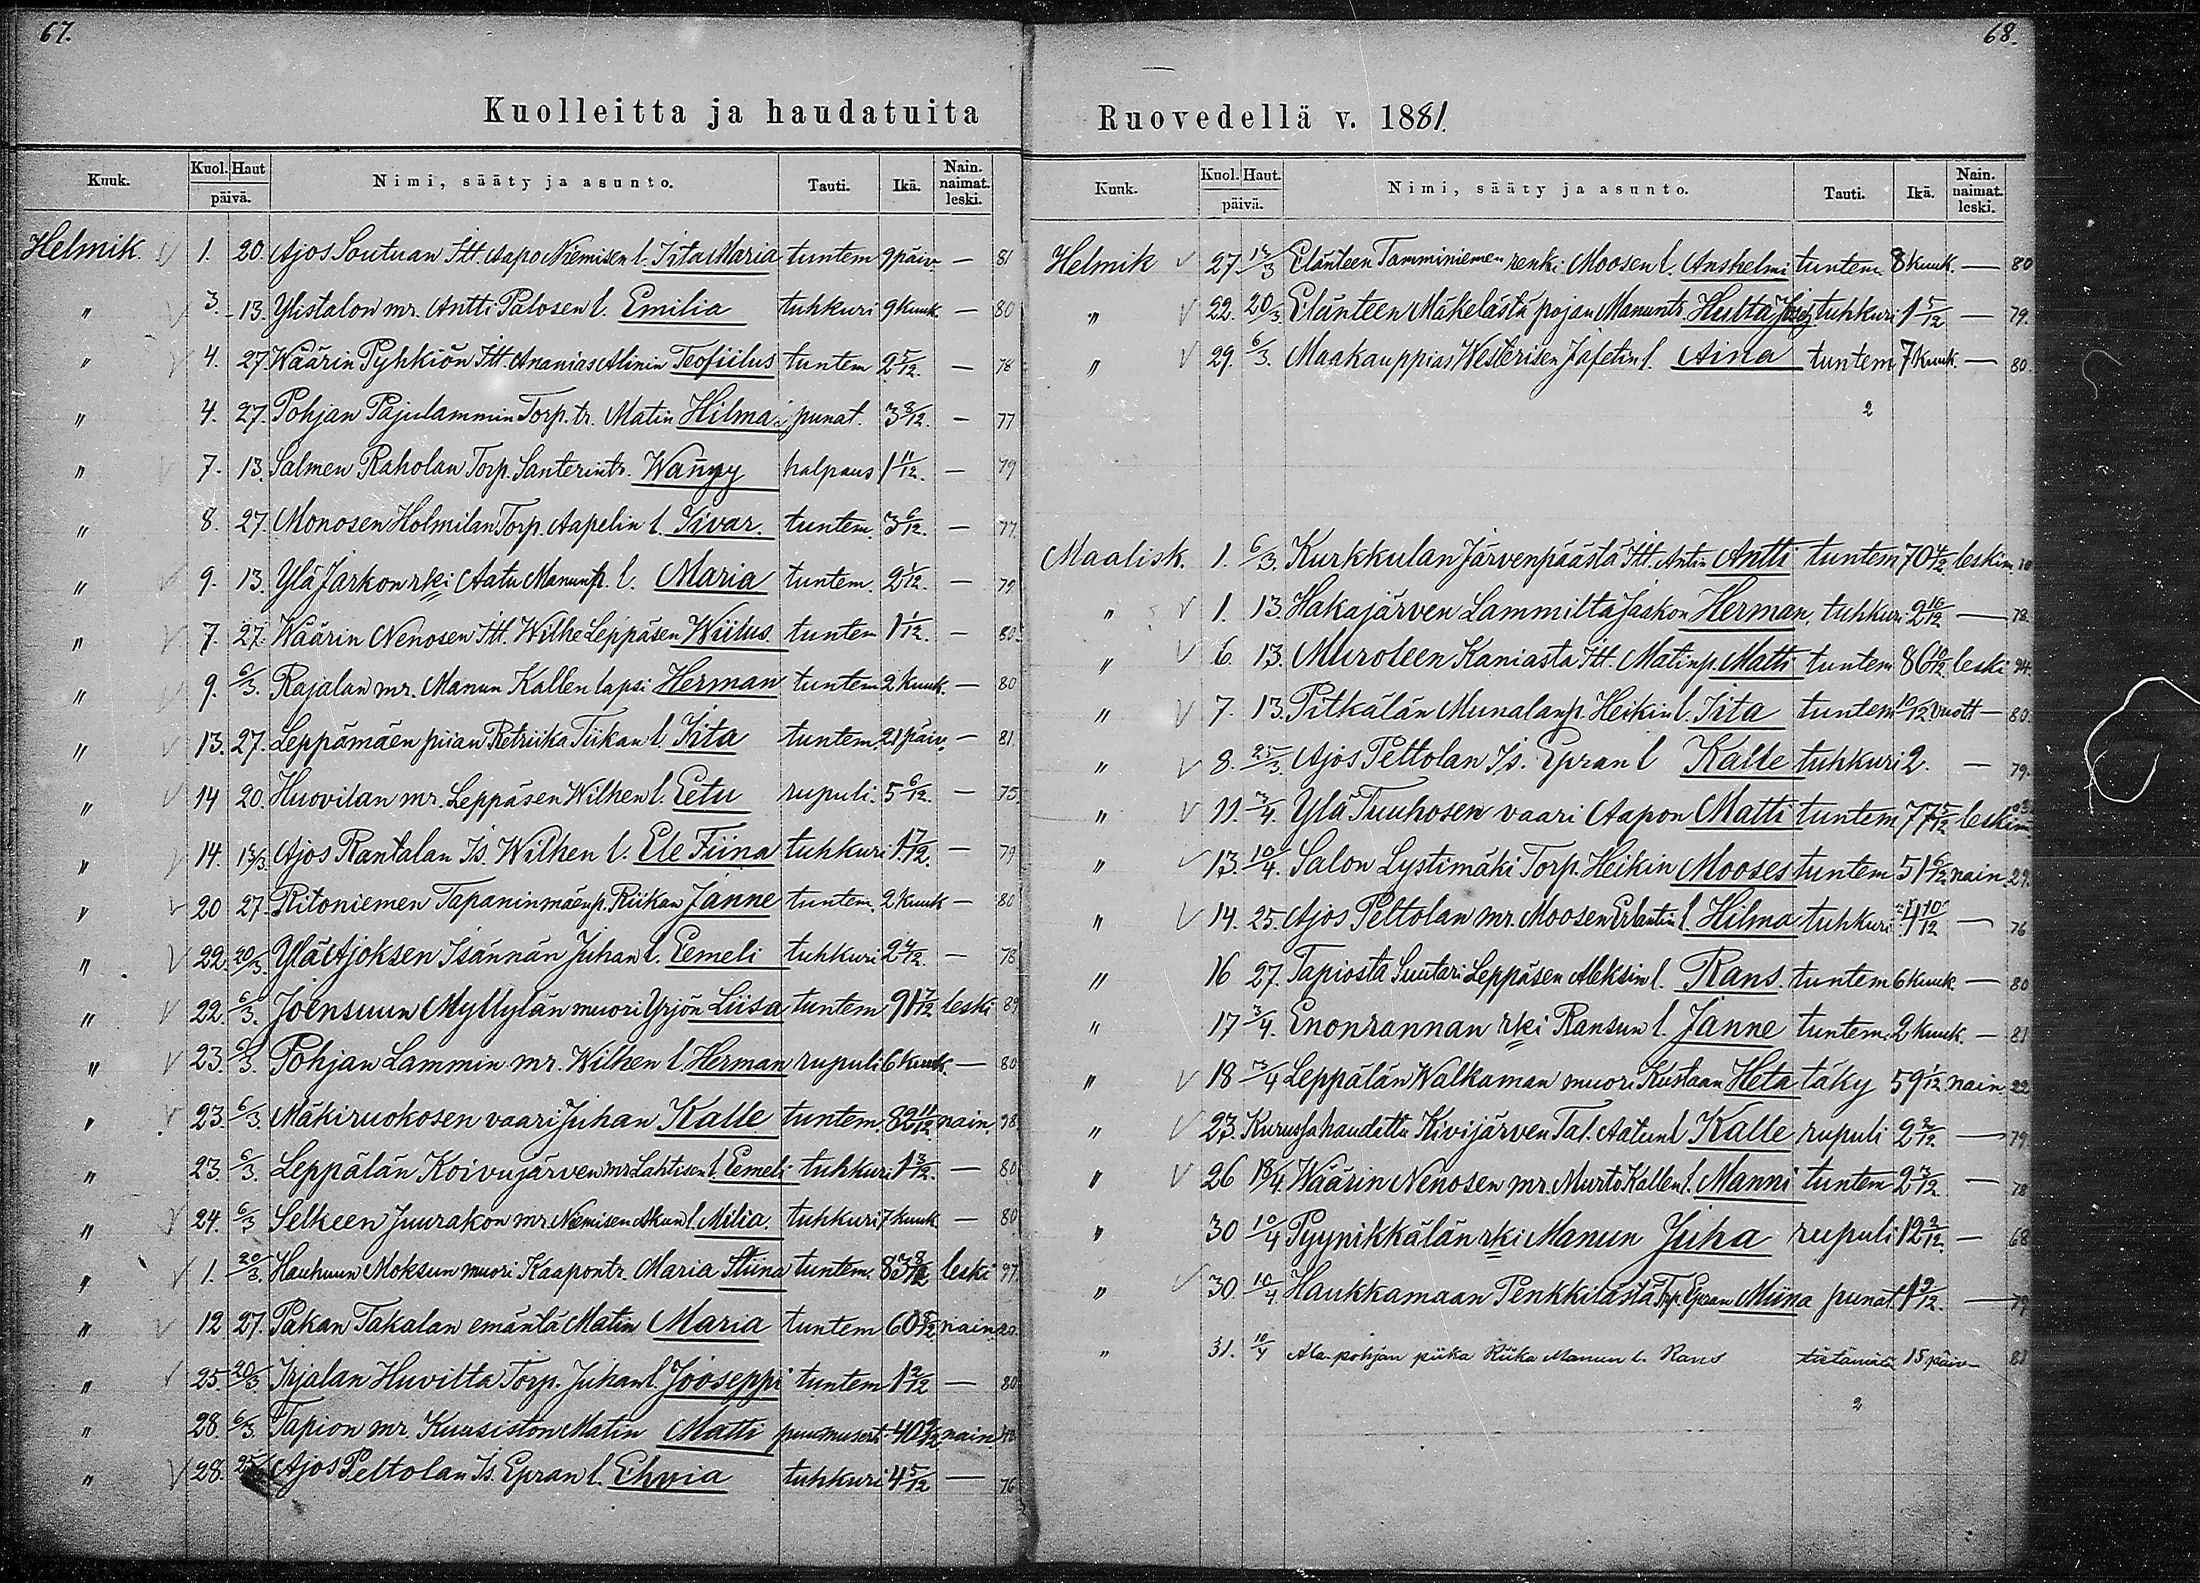 67.
Kuolleitta ja haudatuita
Kuuk. Kuol. Haut päivä. Nimi, sääty ja asunto. Tauti. Ikä. Nain. naimat. leski.
Helmik. 1. 20. Ajos Soutuan Itt. Aapo Niemisen l. Iita Maria tuntem 9 päiv. — 81
" 3. 13. Ylistalon mr. Antti Palosen l. Emilia tuhkuri 9 kuuk. — 80
" 4. 27 Wäärin Pyhkiön Itt. Ananias Alinin Teofiilus tuntem 2 5/12. — 78
" 4. 27. Pohjan Pajulammin Torp. tr. Matin Hilma punat. 3 8/12. — 77
" 7. 13. Salmen Raholan Torp. Santerin tr. Wanny halpaus 1 11/12. — 79
" 8. 27. Monosen Holmilan Torp. Aapelin l. Iivar. tuntem. 3 6/12. — 77
" 9. 13. Ylä Jarkon rki Aatu Manun p. l. Maria tuntem. 2 1/12. — 79
" 7. 27. Wäärin Nenosen Itt. Wilhe Leppäsen Wiilus tuntem 1 1/12. — 80
" 9. 6/3. Rajalan mr. Manun Kallen lapsi Herman tuntem 2 kuuk. — 80
" 13. 27. Leppämäen piian Retriika Tiikan l. Iita tuntem. 21 päiv. — 81
" 14 20. Huovilan mr. Leppäsen Wilhen l. Eetu rupuli. 5 6/12. — 75
" 14. 13/3 Ajos Rantalan Is. Wilhen l. Ele Fiina tuhkuri 1 7/12. — 79
" 20 27. Ritoniemen Tapaninmäen p. Riikan Janne tuntem. 2 kuuk — 80
" 22. 20/3. Ylä Ajoksen Isännän Juhan l. Eemeli tuhkuri 2 4/12. — 78
" 22. 6/3. Joensuun Myllylän muori Yrjön Liisa tuntem 91 7/12 leski 89
" 23. 6/3. Pohjan Lammin mr. Wilhen l. Herman rupuli 6 kuuk. — 80
" 23. 6/3. Mäkiruokosen vaari Juhan Kalle tuntem. 82 11/12 nain. 98
" 23. 6/3. Leppälän Koivujärven mr Lahtisen l. Eemeli tuhkuri 1 3/12. — 80
" 24. 6/3 Selkeen Juurakon mr Niemisen Akun l. Milia. tuhkuri 7 kuuk — 80
" 1. 20/3. Hauhuun Moksun muori Kaapon tr. Maria Stiina tuntem. 83 leski 97
" 12 27. Pakan Takalan emäntä Matin Maria tuntem 60 nain. 20
" 25. 20/3. Irjalan Huvilta Torp. Juhan l. Jooseppi tuntem 1 2/12 — 80
" 28. 6/3. Tapion mr. Kuusiston Matin Matti puu musert. 40 nain
" 28. Ajos Peltolan Is. Epran l. Ehvia tuhkuri 4 5/12 — 76
68.
Ruovedellä v. 1881.
Kuuk. Kuol. Haut. päivä. Nimi, sääty ja asunto. Tauti. Ikä. Nain. naimat. leski.
Helmik 27. 13/3 Elänteen Tamminiemen renki Moosen l. Anshelmi tuntem. 8 kuuk. — 80
" 22. 20/3. Elänteen Mäkelästä pojan Manun tr. Hulta tuhkuri 1 5/12 — 79.
" 29. 6/3. Maakauppias Westerisen Jafetin l. Aina tuntem 7 kuuk. — 80.
2
Maalisk. 1. 6/3. Kurkkulan Järvenpäästä Itt. Antin Antti tuntem 70 4/12 leskim. 10
" 1. 13. Hakajärven Lammilta Jaakon Herman. tuhkuri 2 10/12 — 78.
" 6. 13. Muroleen Kaniasta Itt. Matin p. Matti tuntem 86 10/12 leski 94.
" 7. 13. Pitkälän Munalan p. Heikin l. Iita tuntem 10/12 vuott — 80.
" 8. 25/3. Ajos Peltolan Is. Epran l Kalle tuhkuri 2. — 79.
" 11. 3/4. Ylä Tuuhosen vaari Aapon Matti tuntem 77 5/12 leskim.
" 13. 10/4. Salon Lystimäki Torp. Heikin Mooses tuntem 51 6/12 nain. 29.
" 14. 25. Ajos Peltolan mr. Moosen Erlantin l. Hilma tuhkuri 4 10/12 — 76
" 16 27. Tapiosta Suutari Leppäsen Aleksin l. Rans. tuntem 6 kuuk. — 80
" 17 3/4. Enonrannan rki Ransun l. Janne tuntem. 2 kuuk. — 81
" 18 3/4 Leppälän Walkaman muori Kustaan Heta täky 59 1/12 nain. 22
" 23. Kurussa haudattu Kivijärven Tal. Aatun l Kalle rupuli 2 2/12 — 79.
" 26 18/4. Wäärin Nenosen mr. Murto Kallen l. Manni tuntem 2 3/12 — 78
" 30 10/4 Pyynikkälän rki Manun Juha rupuli 12 2/12. — 68
" 30. 10/4. Haukkamaan Penkkilästä Trp. Epran Miina punat. 1 9/12. — 79
" 31. 10/4 Ala-pohjan piika Riika Manun l. Rans 15 päiv — 81
2